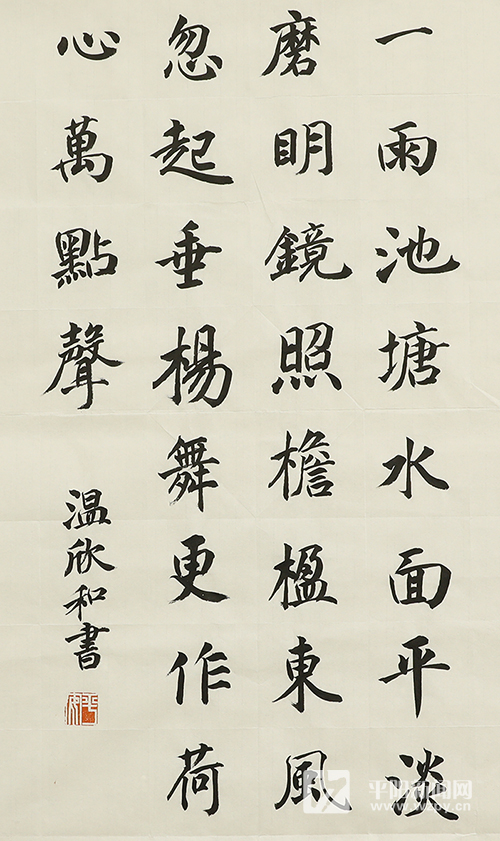 一雨池塘水面平淡
磨明鏡照檐楹東風
忽起垂楊舞更作荷
心萬點聲
温欣和書
平阳新闻网